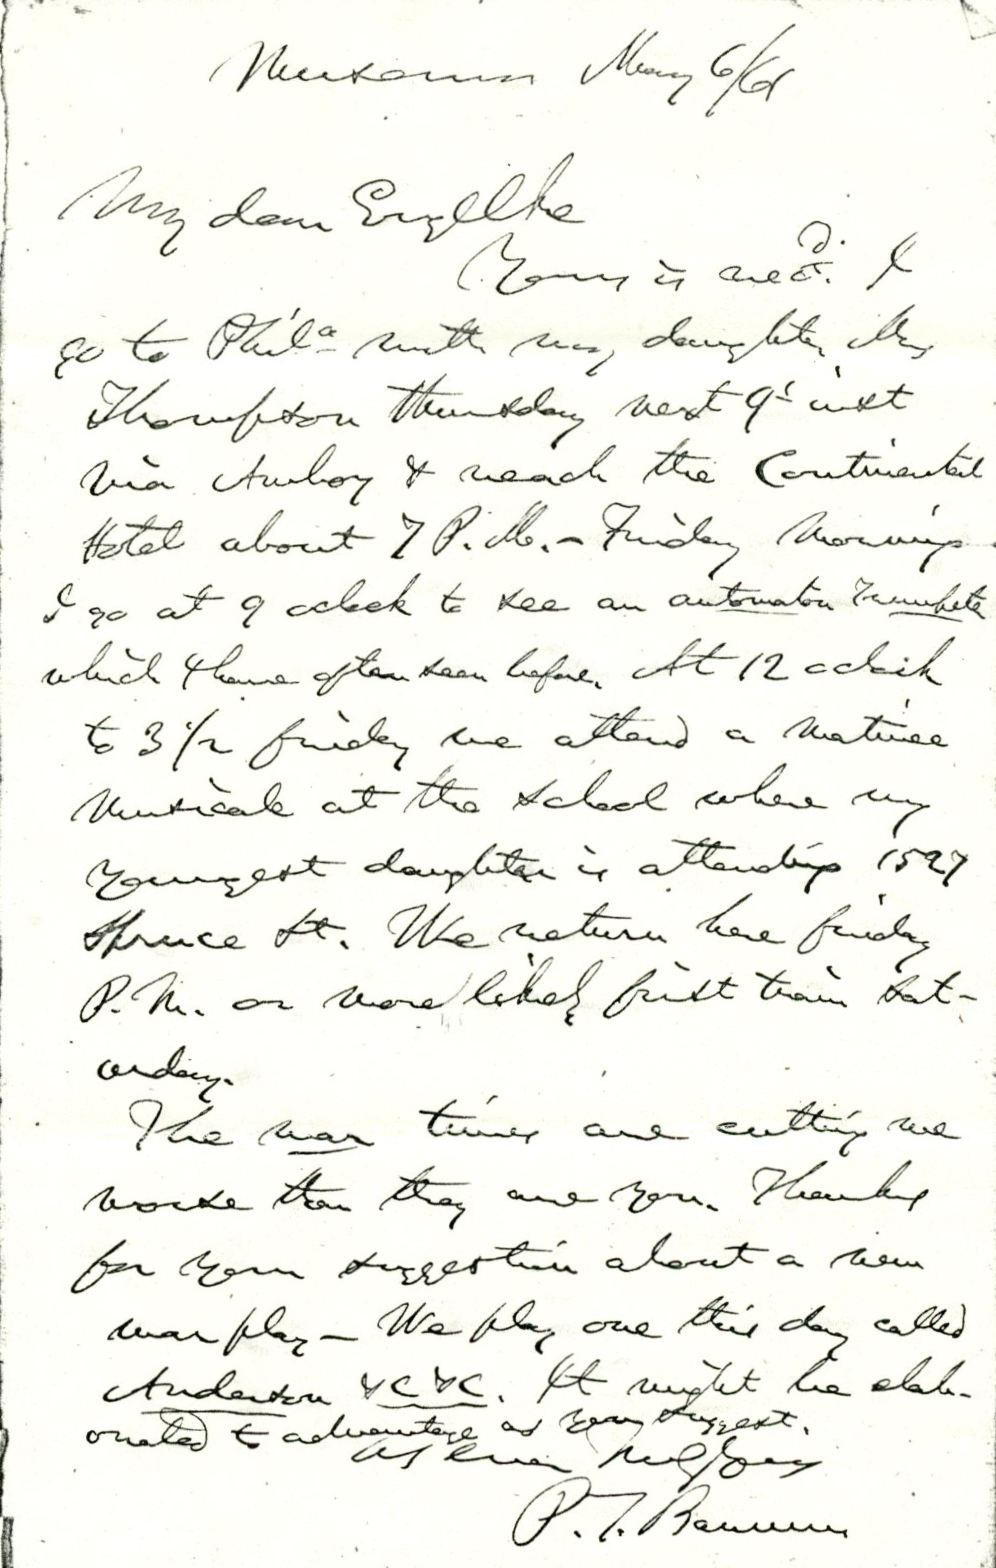 Museum May 6/61
My dear
Yours is recd. I
go to Phila with my daughter Mrs
Thompson thursday next 9t inst
via Amboy & reach the Continental
Hotel about 7 P.M. – Friday morning
I go at 9 oclock to see an automaton Trumpeter
which I have often seen before. At 12 oclock
to 3 1/2 friday we attend a matinee
musicale at the school where my
youngest daughter is attending 1527
Spruce St. We return here friday
P.M. or more likely first train Sat-
urday.
The war times are cutting me
worse than they are you. Thanks
for your suggestion about a new
war play – We play one this day called
Anderson &c &c. It might be elab-
orated to advantage as you suggest.
As ever truly yours
P. T. Barnum